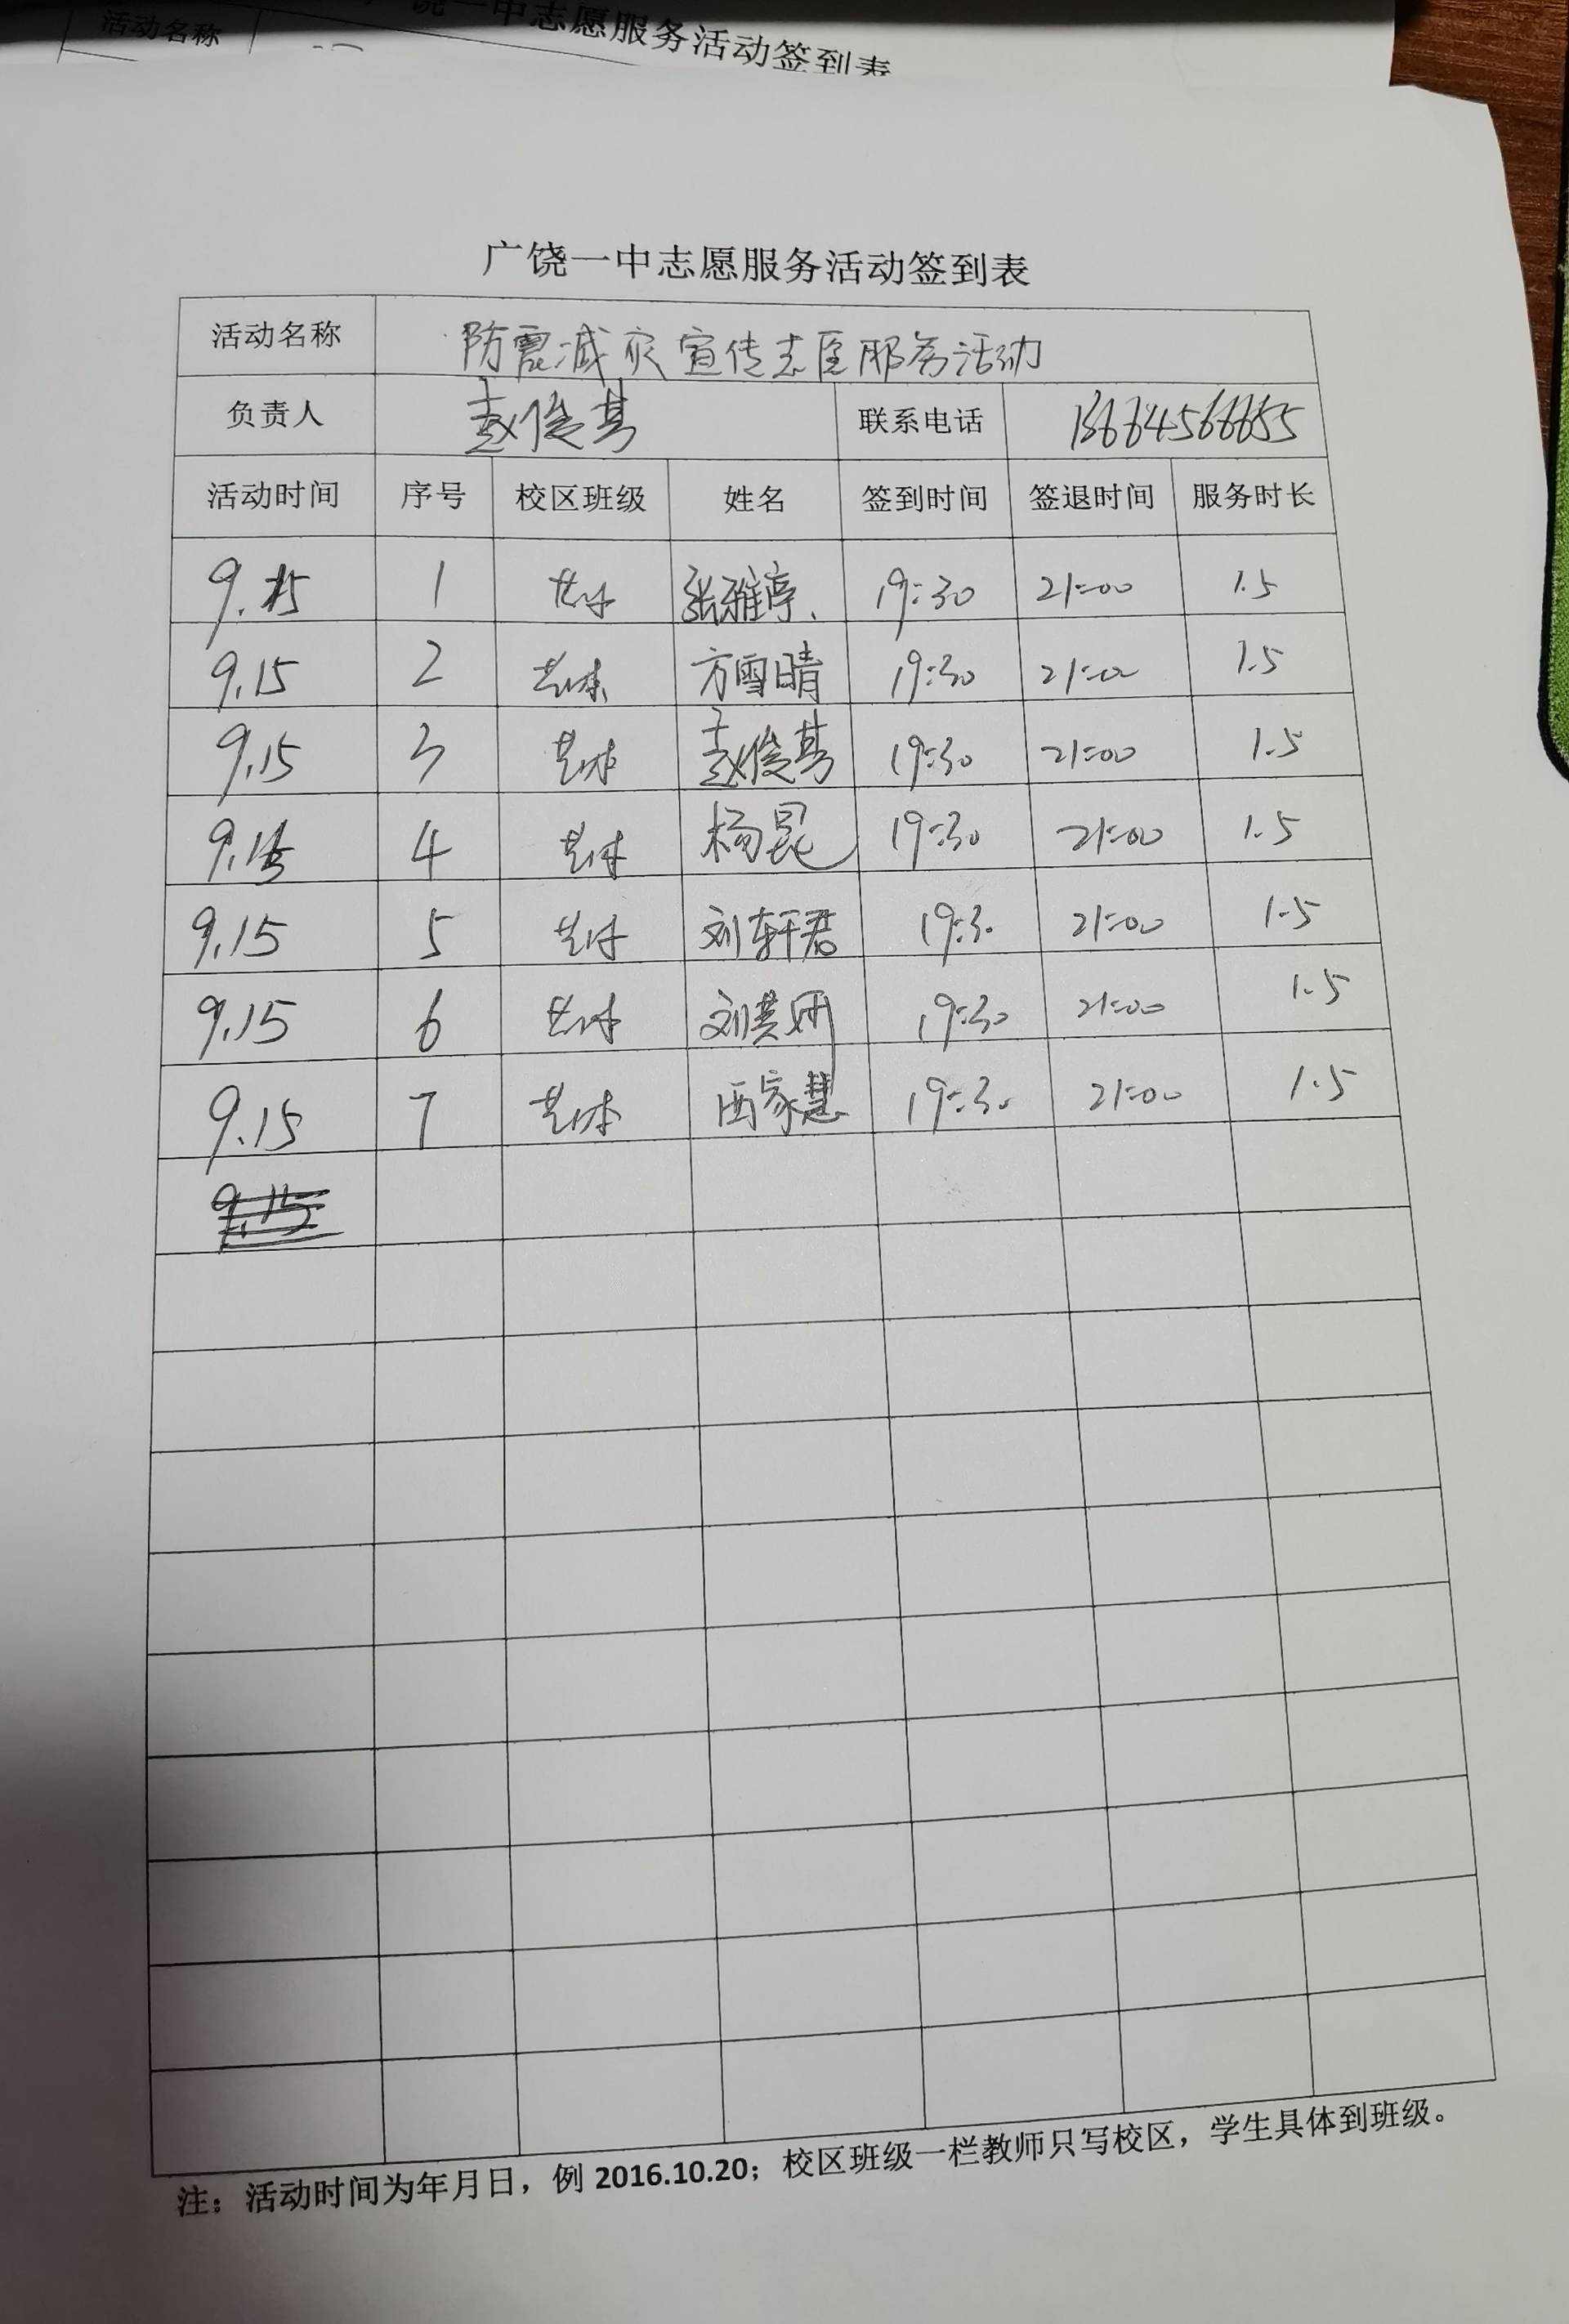 活动名称
饶一中志愿服务活动签到表
广饶一中志愿服务活动签到表
活动名称 防震减灾宣传志愿服务活动
负责人 赵俊 联系电话
活动时间 序号 校区班级 姓名 签到时间 签退时间 服务时长
9.15 1 艺体 张雅亭 19:30 21:00 1.5
9.15 2 艺体 方雪晴 19:30 21:00 1.5
9.15 3 艺体 赵俊 19:30 21:00 1.5
9.15 4 艺体 杨昆 19:30 21:00 1.5
9.15 5 艺体 刘轩君 19:30 21:00 1.5
9.15 6 艺体 刘 19:30 21:00 1.5
9.15 7 艺体 西家慧 19:30 21:00 1.5
9.15
注：活动时间为年月日，例 2016.10.20；校区班级一栏教师只写校区，学生具体到班级。